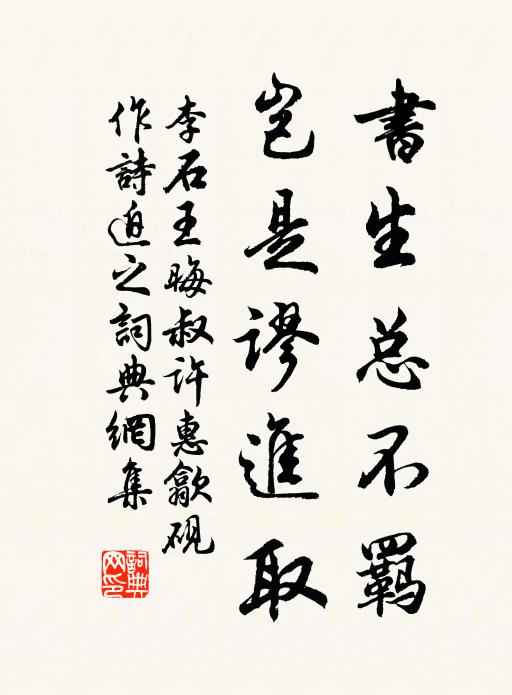 書生总不羈
豈是謬進取
李石王晦叔許惠歙硯
作詩迫之詞典網集
詞典网印